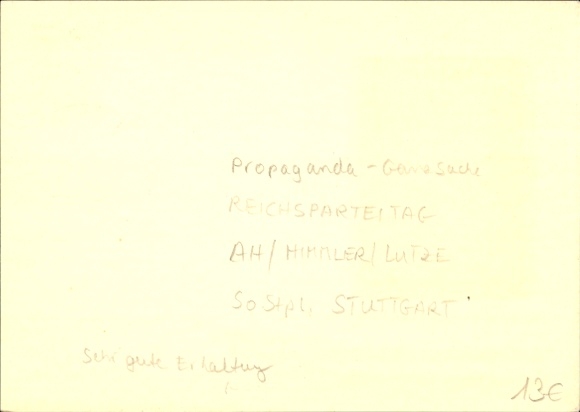 Propaganda - Ganzsache
REICHSPARTEITAG
AH/HIMMLER/LUTZE
SoStpl. STUTTGART
Sehr gute Erhaltung
13€